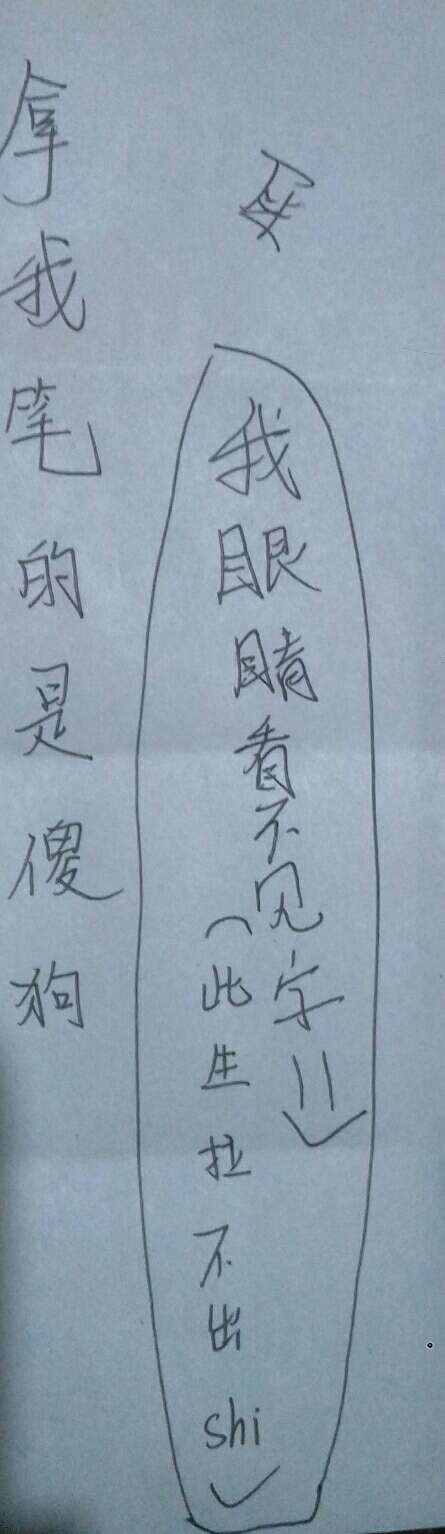 拿我笔的是傻狗
我眼睛看不见字=)
(此生拉不出shi)